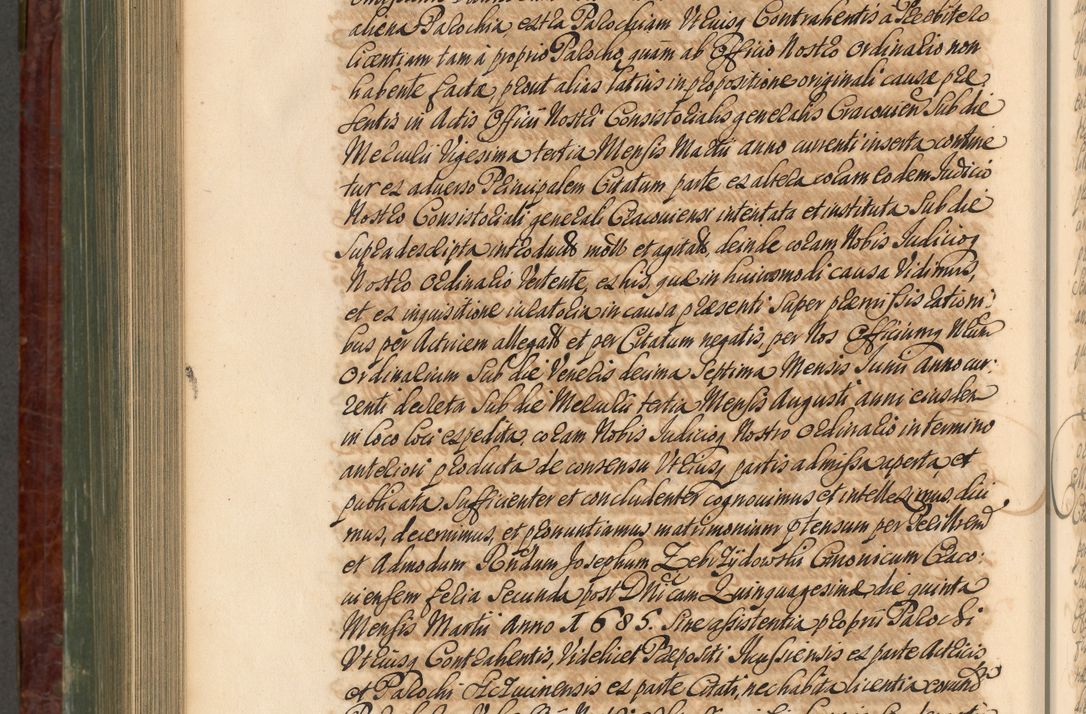 aliena Parochia, extra Parochiam Utriusq Contrahentis à Presbitero
licentiam tam à proprio Parocho, quam ab Officio Nostro Ordinario non
habente factæ, prout alias latius in propositione originali causæ præ
sentis in Actis Officii Nostri Consistorialis generalis Cracovien Sub die
Mercurii Vigesima tertia Mensis Martii anno currenti inserta contine
tur ex adverso Principalem Citatum parte ex altera coram eodem Judicio
Nostro Consistoriali generali Cracoviensi intentata et instituta Sub die
supra descripta introducto et agitato, deinde coram Nobis Judicioq
Nostro Ordinario Vertente, ex his, quæ in huiusmodi causa Vidimus,
et ex inquisitione iuratoria in causa præsenti super præmissis rationi
bus per Actricem allegatis et per Citatum negatis, per Nos Officiumq Nrum
Ordinarium Sub die Veneris decima Septima Mensis Junii anno cur:
renti decreta Sub die Mercurii tertia Mensis Augusti anni eiusdem
in loco loci expedita, coram Nobis Judicioq Nostro Ordinario in termino
anteriori producta de consensu Utriusq partis admissa aperta et
publicata Sufficienter et concludenter cognovimus et intelleximus, dici
mus, decernimus, et pronuntiamus matrimonium ptensum per Perillrem
et Admodum Rndum Josephum Zebrzydowski Canonicum Craco:
viensem feria Secunda post Dnicam Quinquagesimæ, die quinta
Mensis Martii Anno 1685. Sine assistentia proprii Parochi
Utriusq Contrahentis, Videlicet Præpositi Ilcussiensis ex parte Actricis
et Parochi ex parte Citati, nec habita licentia eorund